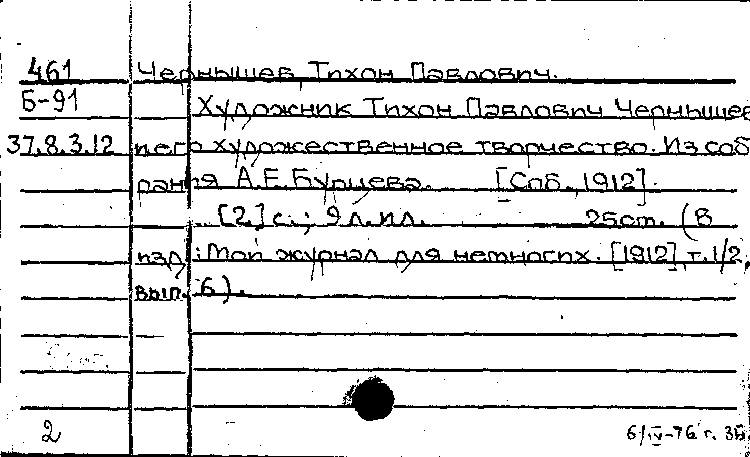 461 Чернышев, Тихон Павлович.
Б-91 Художник Тихон Павлович Чернышев
37.8.3.12 и его художественное творчество. Из соб
рания А.Е.Бурцева. [Спб., 1912].
[2] с.; 9 л. ил. 25см. (В
изд.: Мой журнал для немногих. [1912], т.1/2,
вып. 6).
2 6/IV-76 г.